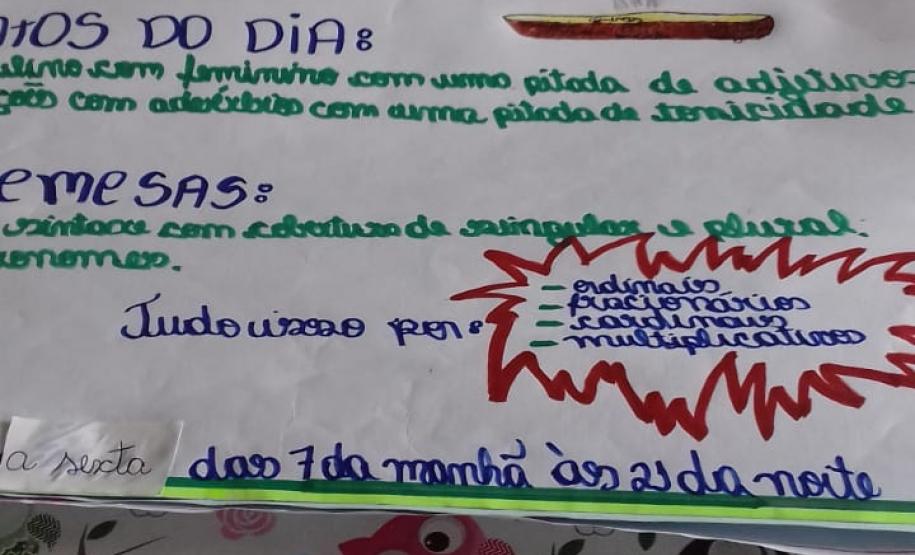 TOS DO DIA:
ulino com feminino com uma pitada de adjetivos
ções com advérbios com uma pitada de tonicidade
EMESAS:
sintaxe com cobertura de singular e plural.
onomes.
- ordinais
- fracionários
Tudo isso por: - cardinais
- multiplicativos
a sexta das 7 da manhã às 21 da noite